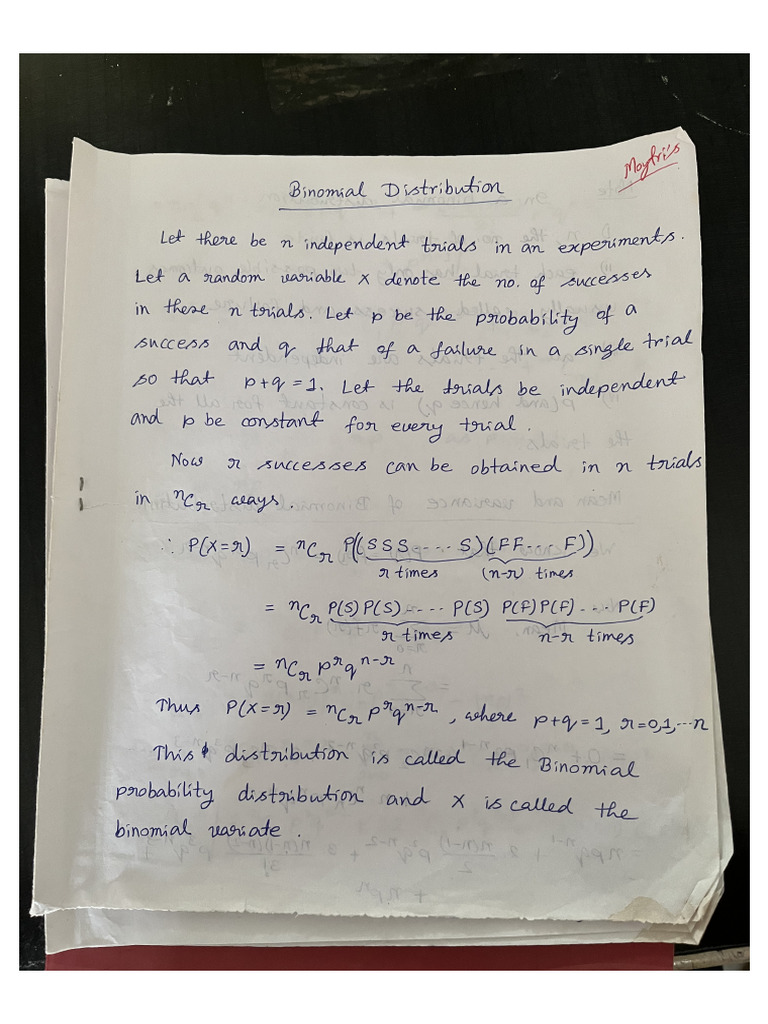 Moytri's
Binomial Distribution
Let there be n independent trials in an experiments.
Let a random variable X denote the no. of successes
in these n trials. Let p be the probability of a
success and q that of a failure in a single trial
so that p+q=1. Let the trials be independent
and p be constant for every trial.
Now r successes can be obtained in n trials
in ⁿCᵣ ways.
∴ P(X=r) = ⁿCᵣ P((SSS....S)(FF...F))
r times (n-r) times
= ⁿCᵣ P(S)P(S).....P(S) P(F)P(F)....P(F)
r times n-r times
= ⁿCᵣ pʳqⁿ⁻ʳ
Thus P(X=r) = ⁿCᵣ pʳqⁿ⁻ʳ, where p+q=1, r=0,1,...n
This distribution is called the Binomial
probability distribution and X is called the
binomial variate.